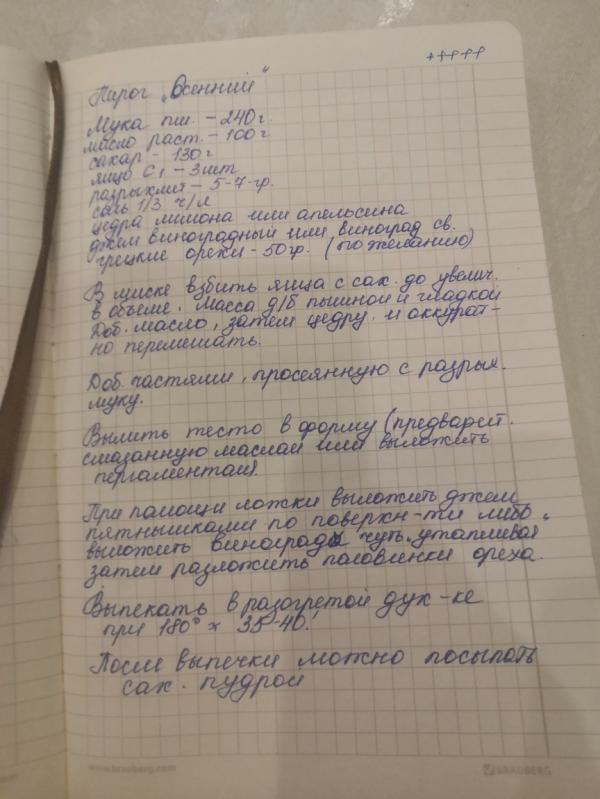 +++++
Пирог „Осенний"
Мука пш. - 240 г.
масло раст. - 100 г
сахар - 130 г
яйцо С1 - 3 шт
разрыхлит - 5-7 гр.
соль 1/3 ч/л
цедра лимона или апельсина
джем виноградный или виноград св.
грецкие орехи - 50 гр. (по желанию)
В миске взбить яйца с сах. до увелич.
в объеме. Масса д/б пышной и гладкой
Доб. масло, затем цедру и аккурат-
но перемешать.
Доб. частями, просеянную с разрых.
муку.
Вылить тесто в форму (предварит.
смазанную маслом или выложить
пергаментом).
При помощи ложки выложить джем
пятнышками по поверхн-ти либо
выложить виноград чуть „утапливая"
затем разложить половинки ореха.
Выпекать в разогретой дух-ке
при 180° х 35-40.'
После выпечки можно посыпать
сах. пудрой
www.brauberg.com
BRAUBERG